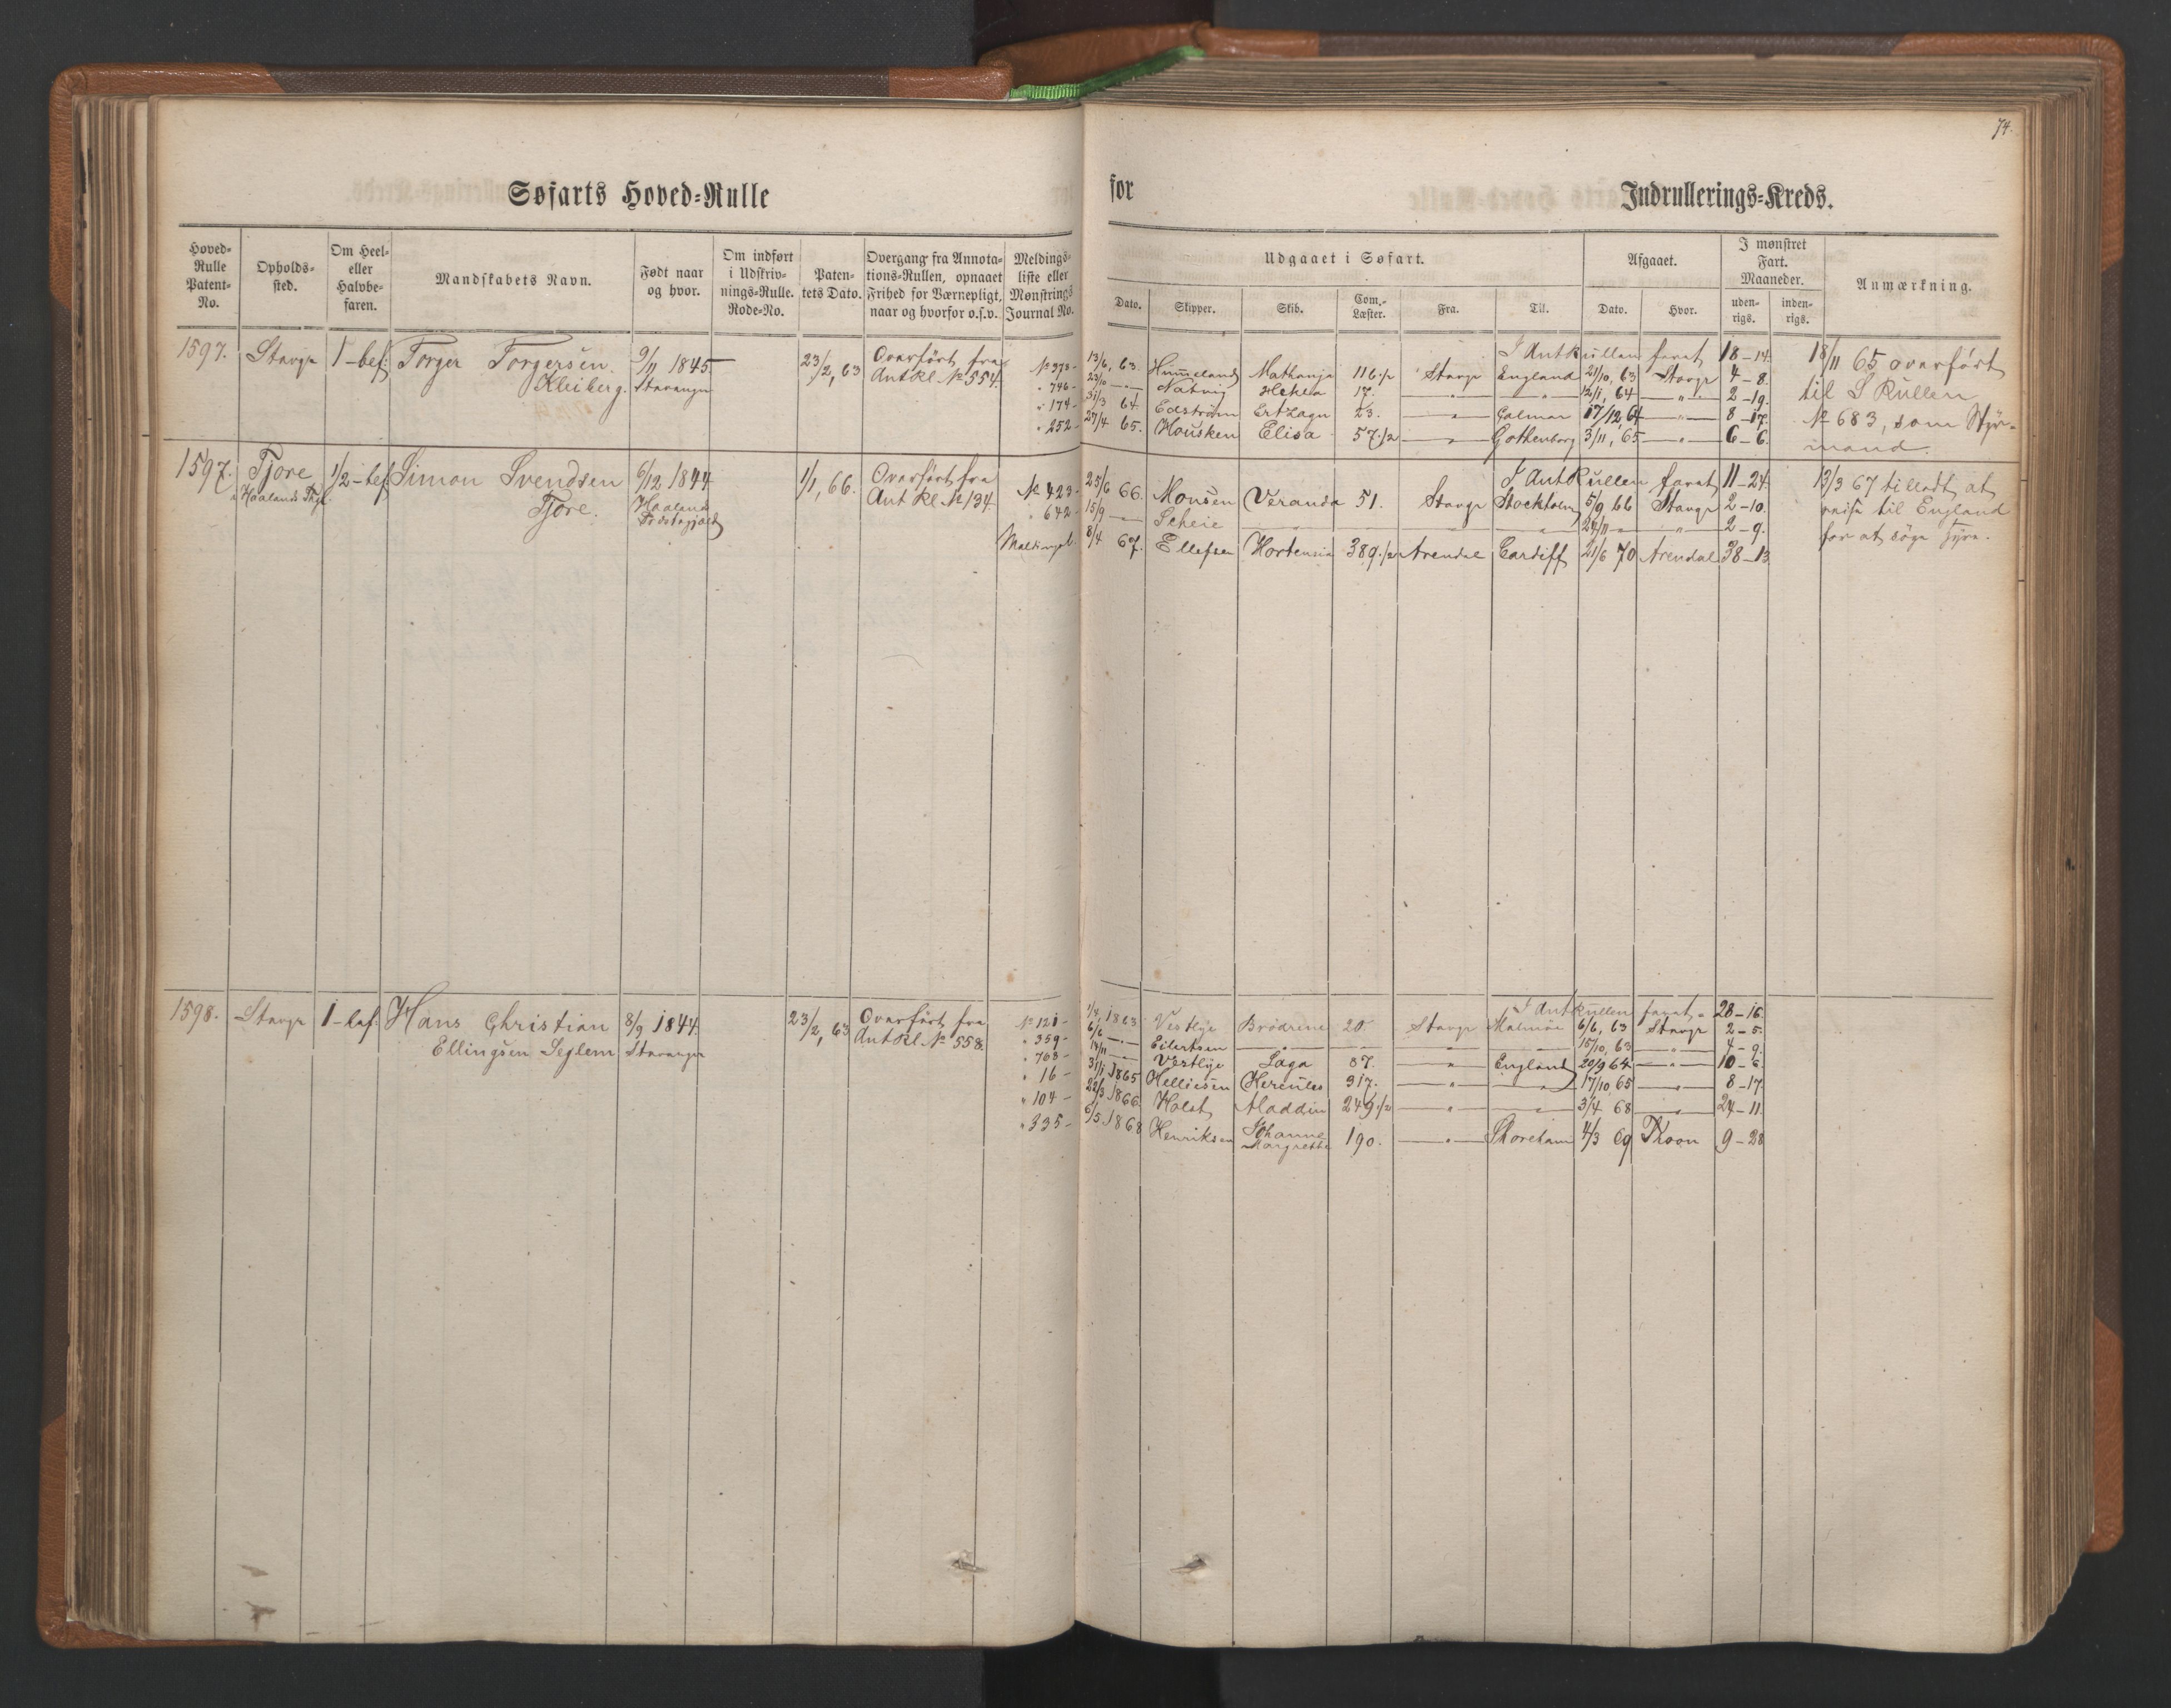 74.
Søfarts Hoved-Rulle for Indrullerings-Kreds.
Hoved-Rulle Patent-No.
Opholds-sted.
Om Heel- eller Halvbe-faren.
Mandskabets Navn.
Født naar og hvor.
Om indført i Udskriv-nings-Rulle. Rode-No.
Paten-tets Dato.
Overgang fra Annota-tions-Rullen, opnaaet Frihed for Værnepligt, naar og hvorfor o.s.v.
Meldings-liste eller Mønstrings Journal No.
Udgaaet i Søfart.
Dato. Skipper. Skib. Com.-Læster. Fra. Til.
Afgaaet.
Dato. Hvor.
I mønstret Fart. Maaneder.
uden-rigs. inden-rigs.
Anmærkning.
1597. Stavgr 1-bef: Torger Torgersen 9/11 1845 23/2, 63 Overført fra
Kleiberg. Stavanger AntRl. No 554
I AntRullen faret 18-14.
No 373- 13/6, 63. Himmeland Mathanja 116 1/2 Stavgr England 21/10, 63 Stavgr 4-8.
" 746- 23/10 -"- Natvig Hekla 17. -"- -"- 12/11, 64 -"- 2-19.
" 174- 31/3 64 Edström Ertzagn 23. -"- Calmar 17/12, 64 -"- 8-17.
" 252- 27/4 65. Housken Elisa 57 1/2 -"- Gothenborg 3/11, 65 -"- 6-6.
18/11 65 overført
til S Rullen
No 683, som Styr-
mand.
1597. Tjore 1/2-bef Simon Svendsen 6/12 1844 1/1, 66. Overført fra
Haalands Thgl. Tjore. Haaland Præstegjæld Ant Rl. No 134
I AntRullen faret 11-24.
No 423- 25/6 66. Monsen Veranda 51. Stavgr Stockholm 5/9 66 Stavgr 2-10.
" 642- 15/9 -"- Scheie -"- -"- 24/11 -"- 2-9.
Meldingsl. 8/4 67. Ellefsen Hortensia 389 1/2 Arendal Cardiff 21/6 70 Arendal 38-13
13/3 67 tilladt at
reise til England
for at søge Hyre.
1598. Stavgr 1-bef: Hans Christian 8/9 1844. 23/2, 63 Overført fra
Ellingsen Seglem Stavanger AntRl. No 558.
I AntRullen faret 28-16.
No 121- 1/4, 1863 Vestlye Brødrene 20. Stavgr Malmöe 6/6, 63 Stavgr 2-5.
" 359- 6/6 -"- Eilertsen -"- -"- -"- 15/10, 63 -"- 4-9.
" 763- 14/11 -"- Vestlye Saga 87. -"- England 20/9 64 -"- 10-6.
" 16- 31/1 1865 Helliesen Hercules 317. -"- -"- 17/10 65 -"- 8-17
" 104- 22/3 1866. Holst Aladdin 249 1/2 -"- -"- 3/4 68 -"- 24-11.
" 335- 6/5. 1868 Henriksen Johanne Margrethe 190. -"- Shoreham 4/3 69 Thoon 9-28